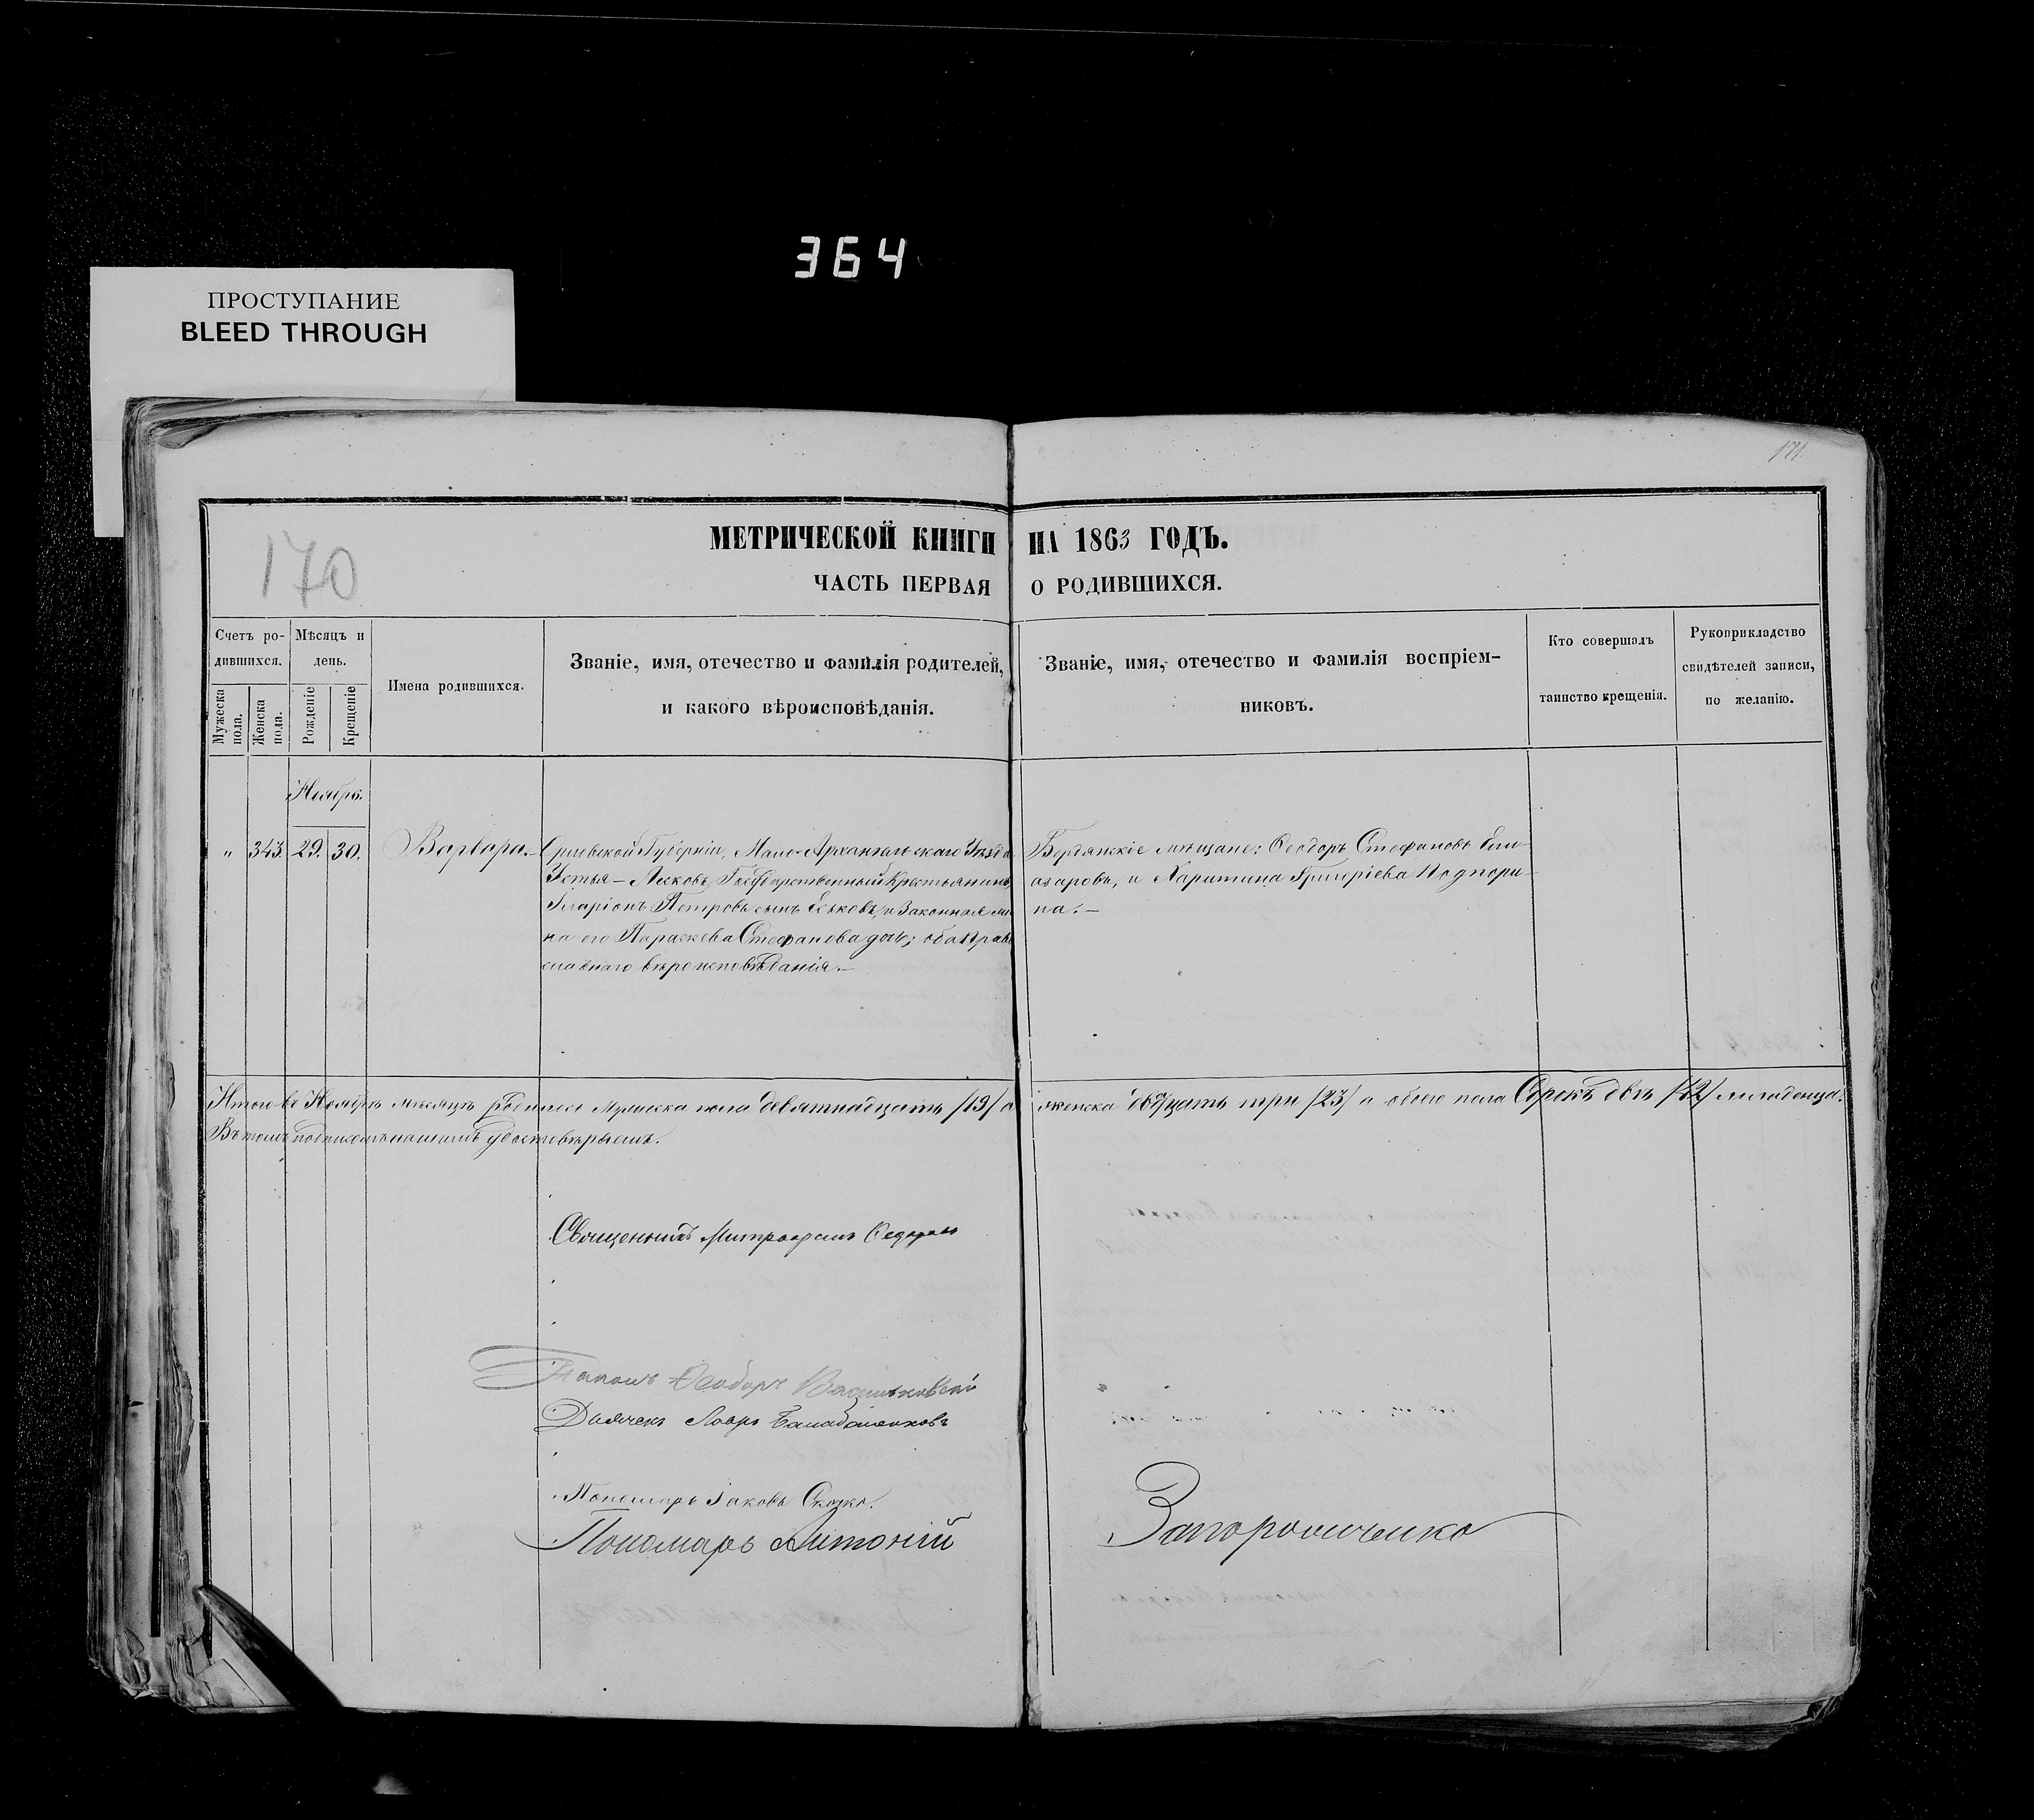 364
ПРОСТУПАНИЕ
BLEED THROUGH
171
170
МЕТРИЧЕСКОЙ КНИГИ НА 1863 ГОДЪ.
ЧАСТЬ ПЕРВАЯ О РОДИВШИХСЯ.
Счетъ родившихся.
Мужеска пола.
Женска пола.
Мѣсяцъ и день.
Рожденіе
Крещеніе
Имена родившихся.
Званіе, имя, отечество и фамилія родителей,
и какого вѣроисповѣданія.
Званіе, имя, отечество и фамилія воспріем-
никовъ.
Кто совершалъ
таинство крещенія.
Рукоприкладство
свидѣтелей записи,
по желанію.
Ноябрь.
" 343. 29. 30. Варвара.
Орловской Губерніи, Мало-Архангельскаго Уѣзда
Устья-Лесковъ, Государственный Крестьянинъ
Иларіонъ Петровъ сынъ и Законная же-
на его Параскева Стефанова дочь; оба Право
славнаго вѣроисповѣданія.—
Бердянскіе мѣщане: Ѳеодоръ Стефановъ
азаровъ, и Харитина Григоріева Подпори-
на.—
Итого въ Ноябрѣ мѣсяцѣ родилось Мужеска пола девятнадцать /19/ а женска двадцать три /23/ а обоего пола Сорокъ двѣ /42/ младенца.
Въ томъ подписомъ нашимъ удостовѣряемъ.
Священникъ Митрофанъ
Ѳеодоръ Васильковскій
Дьячекъ Лавръ
Пономарь Іаковъ
Пономарь Антоній Запорошченко